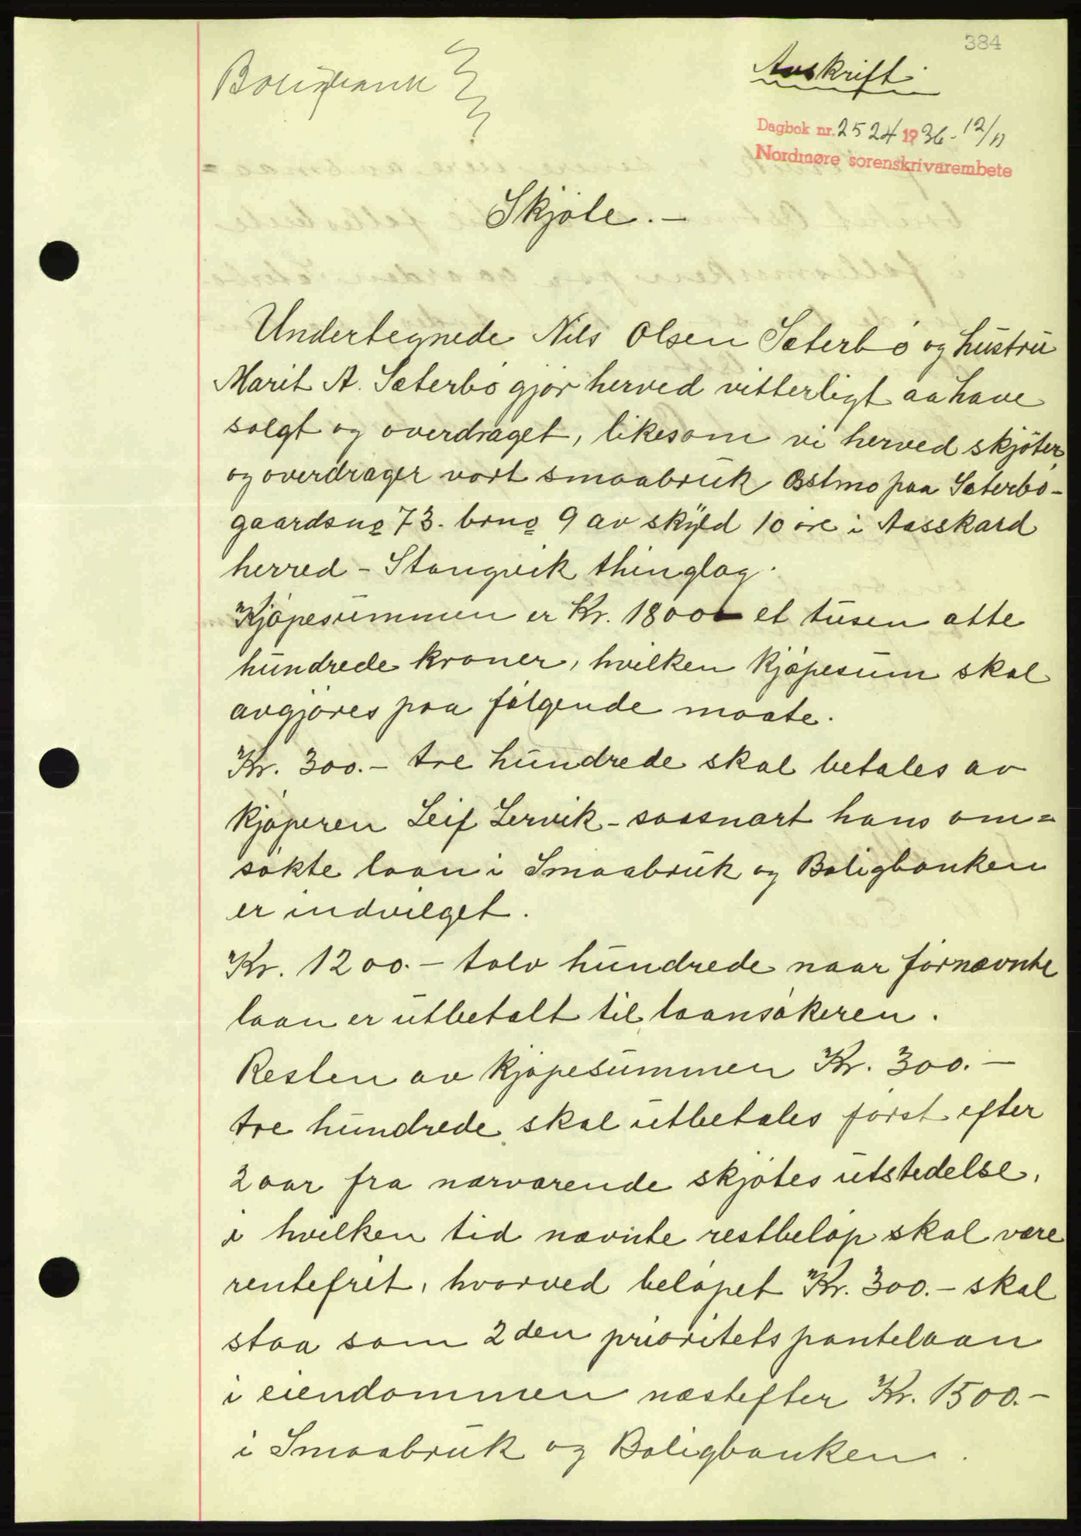 384
Boligbank
Avskrift.
Dagbok nr. 2524 1936 - 12/11
Nordmøre sorenskrivarembete
Skjøte. -
Undertegnede Nils Olsen Sæterbø og hustru
Marit A. Sæterbø gjør herved vitterligt aa have
solgt og overdraget, likesom vi herved skjøter,
og overdrager vort smaabruk Østmo paa Sæterbø-
gaardsno 73. brno 9 av skyld 10 øre i Aasskard
herred - Stangvik thinglag.
Kjøpesummen er Kr. 1800 et tusen atte
hundrede kroner, hvilken kjøpesum skal
avgjøres paa følgende maate.
Kr. 300.- tre hundrede skal betales av
kjøperen Leif Lervik - saasnart hans om=
søkte laan i Smaabruk og Boligbanken
er indvilget.
Kr. 1200.- tolv hundrede naar førnævnte
laan er utbetalt til laansøkeren.
Resten av kjøpesummen Kr. 300.-
tre hundrede skal utbetales først efter
2 aar fra nærværende skjøtes utstedelse,
i hvilken tid nævnte restbeløp skal være
rentefrit, hvorved beløpet Kr. 300.- skal
staa som 2den prioritets pantelaan
i eiendommen næstefter Kr. 1500.-
i Smaabruk og Boligbanken.